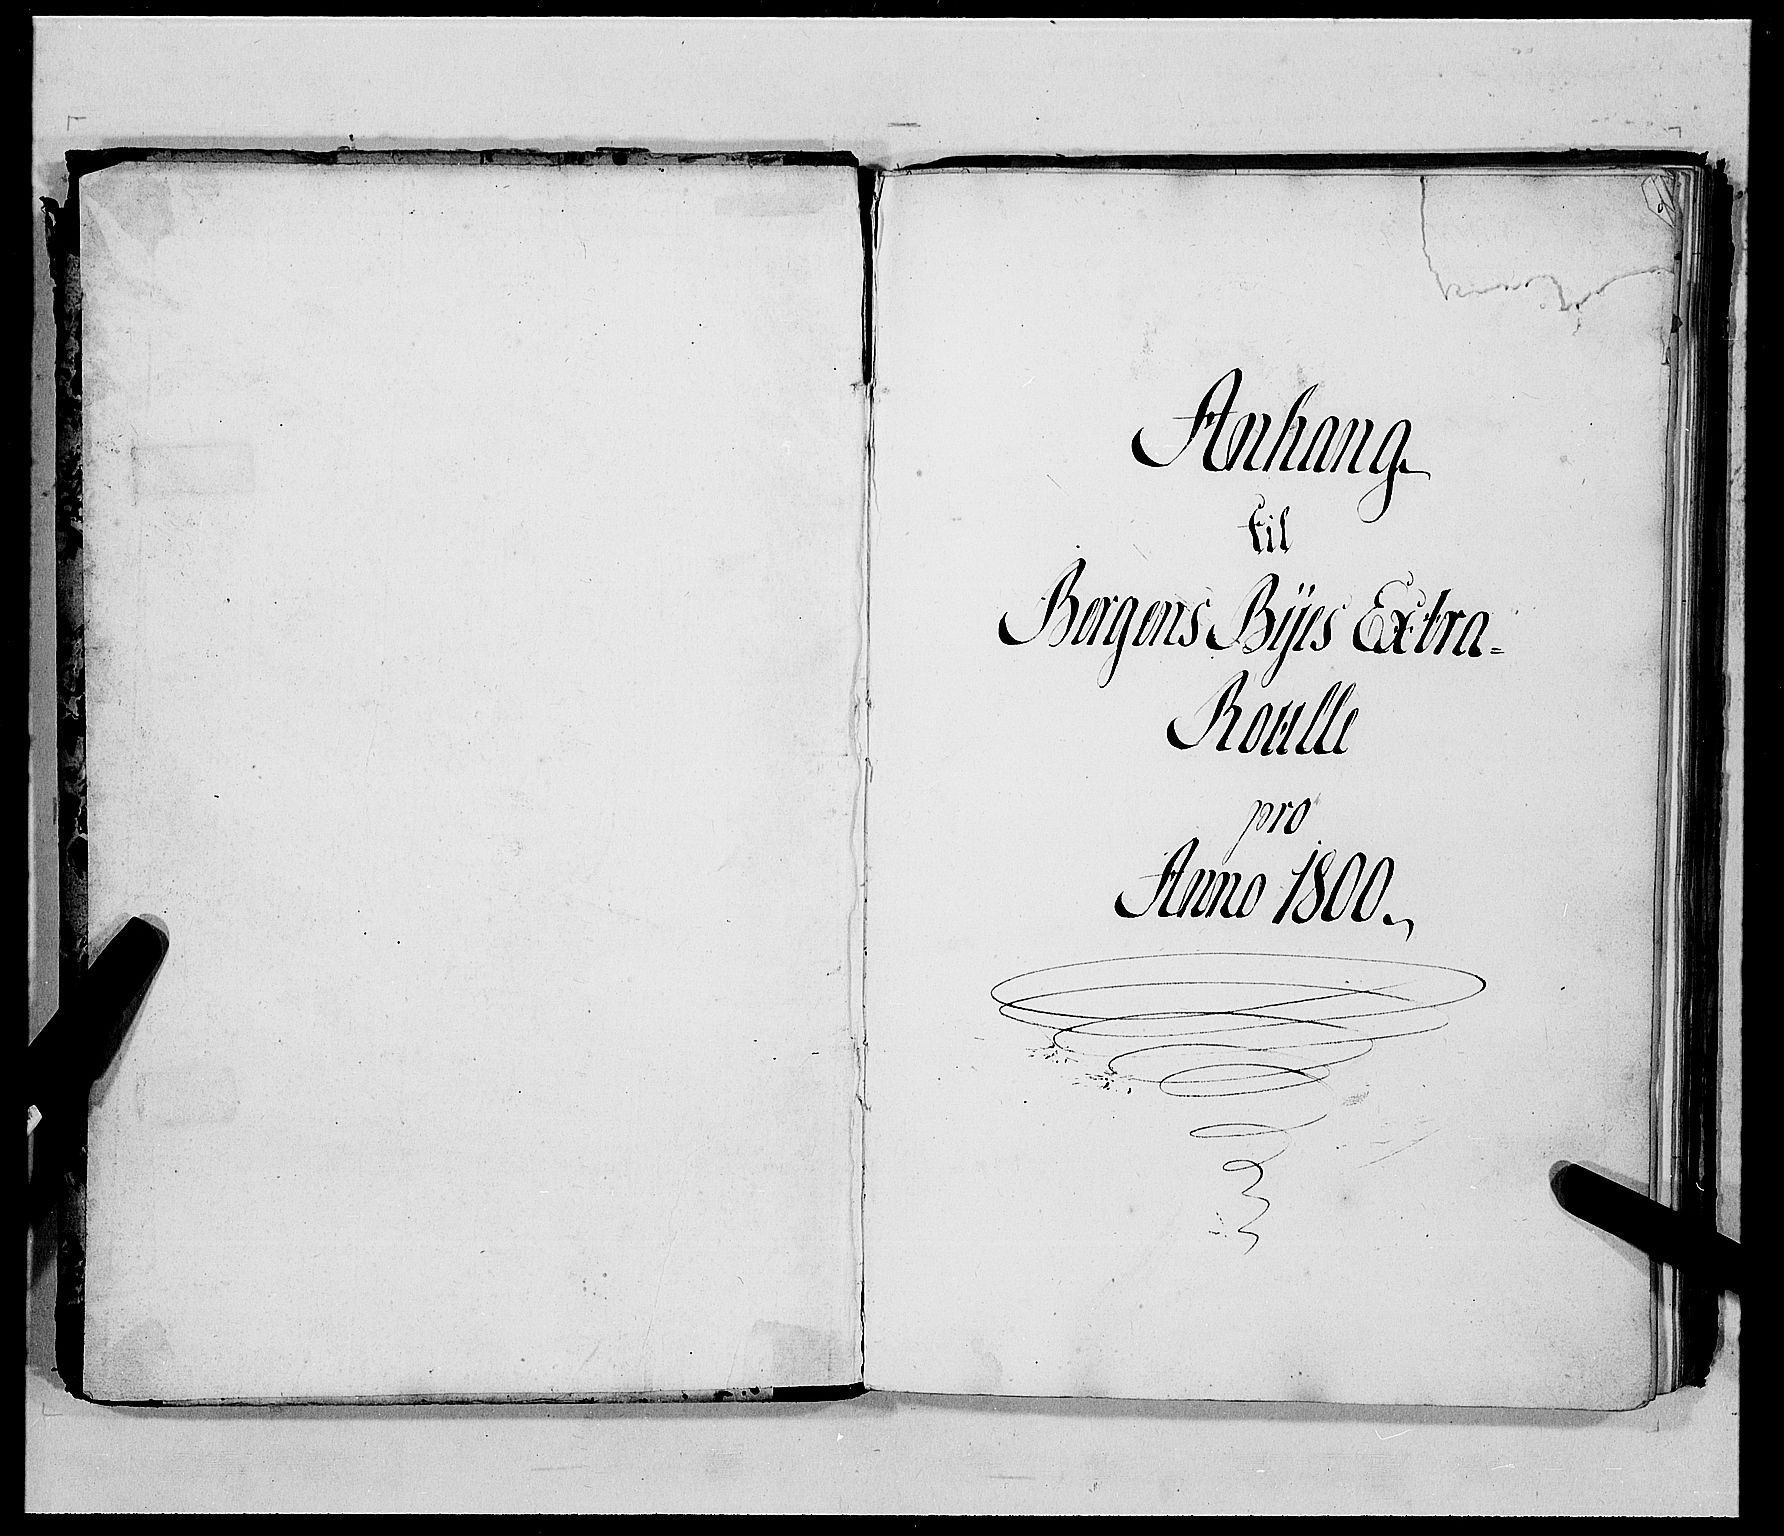 Anhang
til
Bergens Bÿes Extra=
Roulle
pro
Anno 1800.